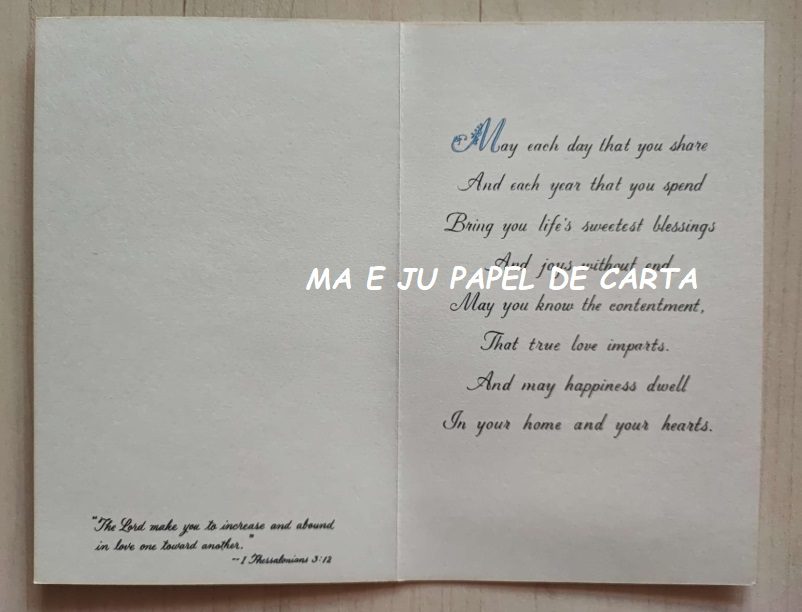 "The Lord make you to increase and abound
in love one toward another."
--1 Thessalonians 3:12
May each day that you share
And each year that you spend
Bring you life's sweetest blessings
And joys without end
MA E JU PAPEL DE CARTA
May you know the contentment,
That true love imparts.
And may happiness dwell
In your home and your hearts.